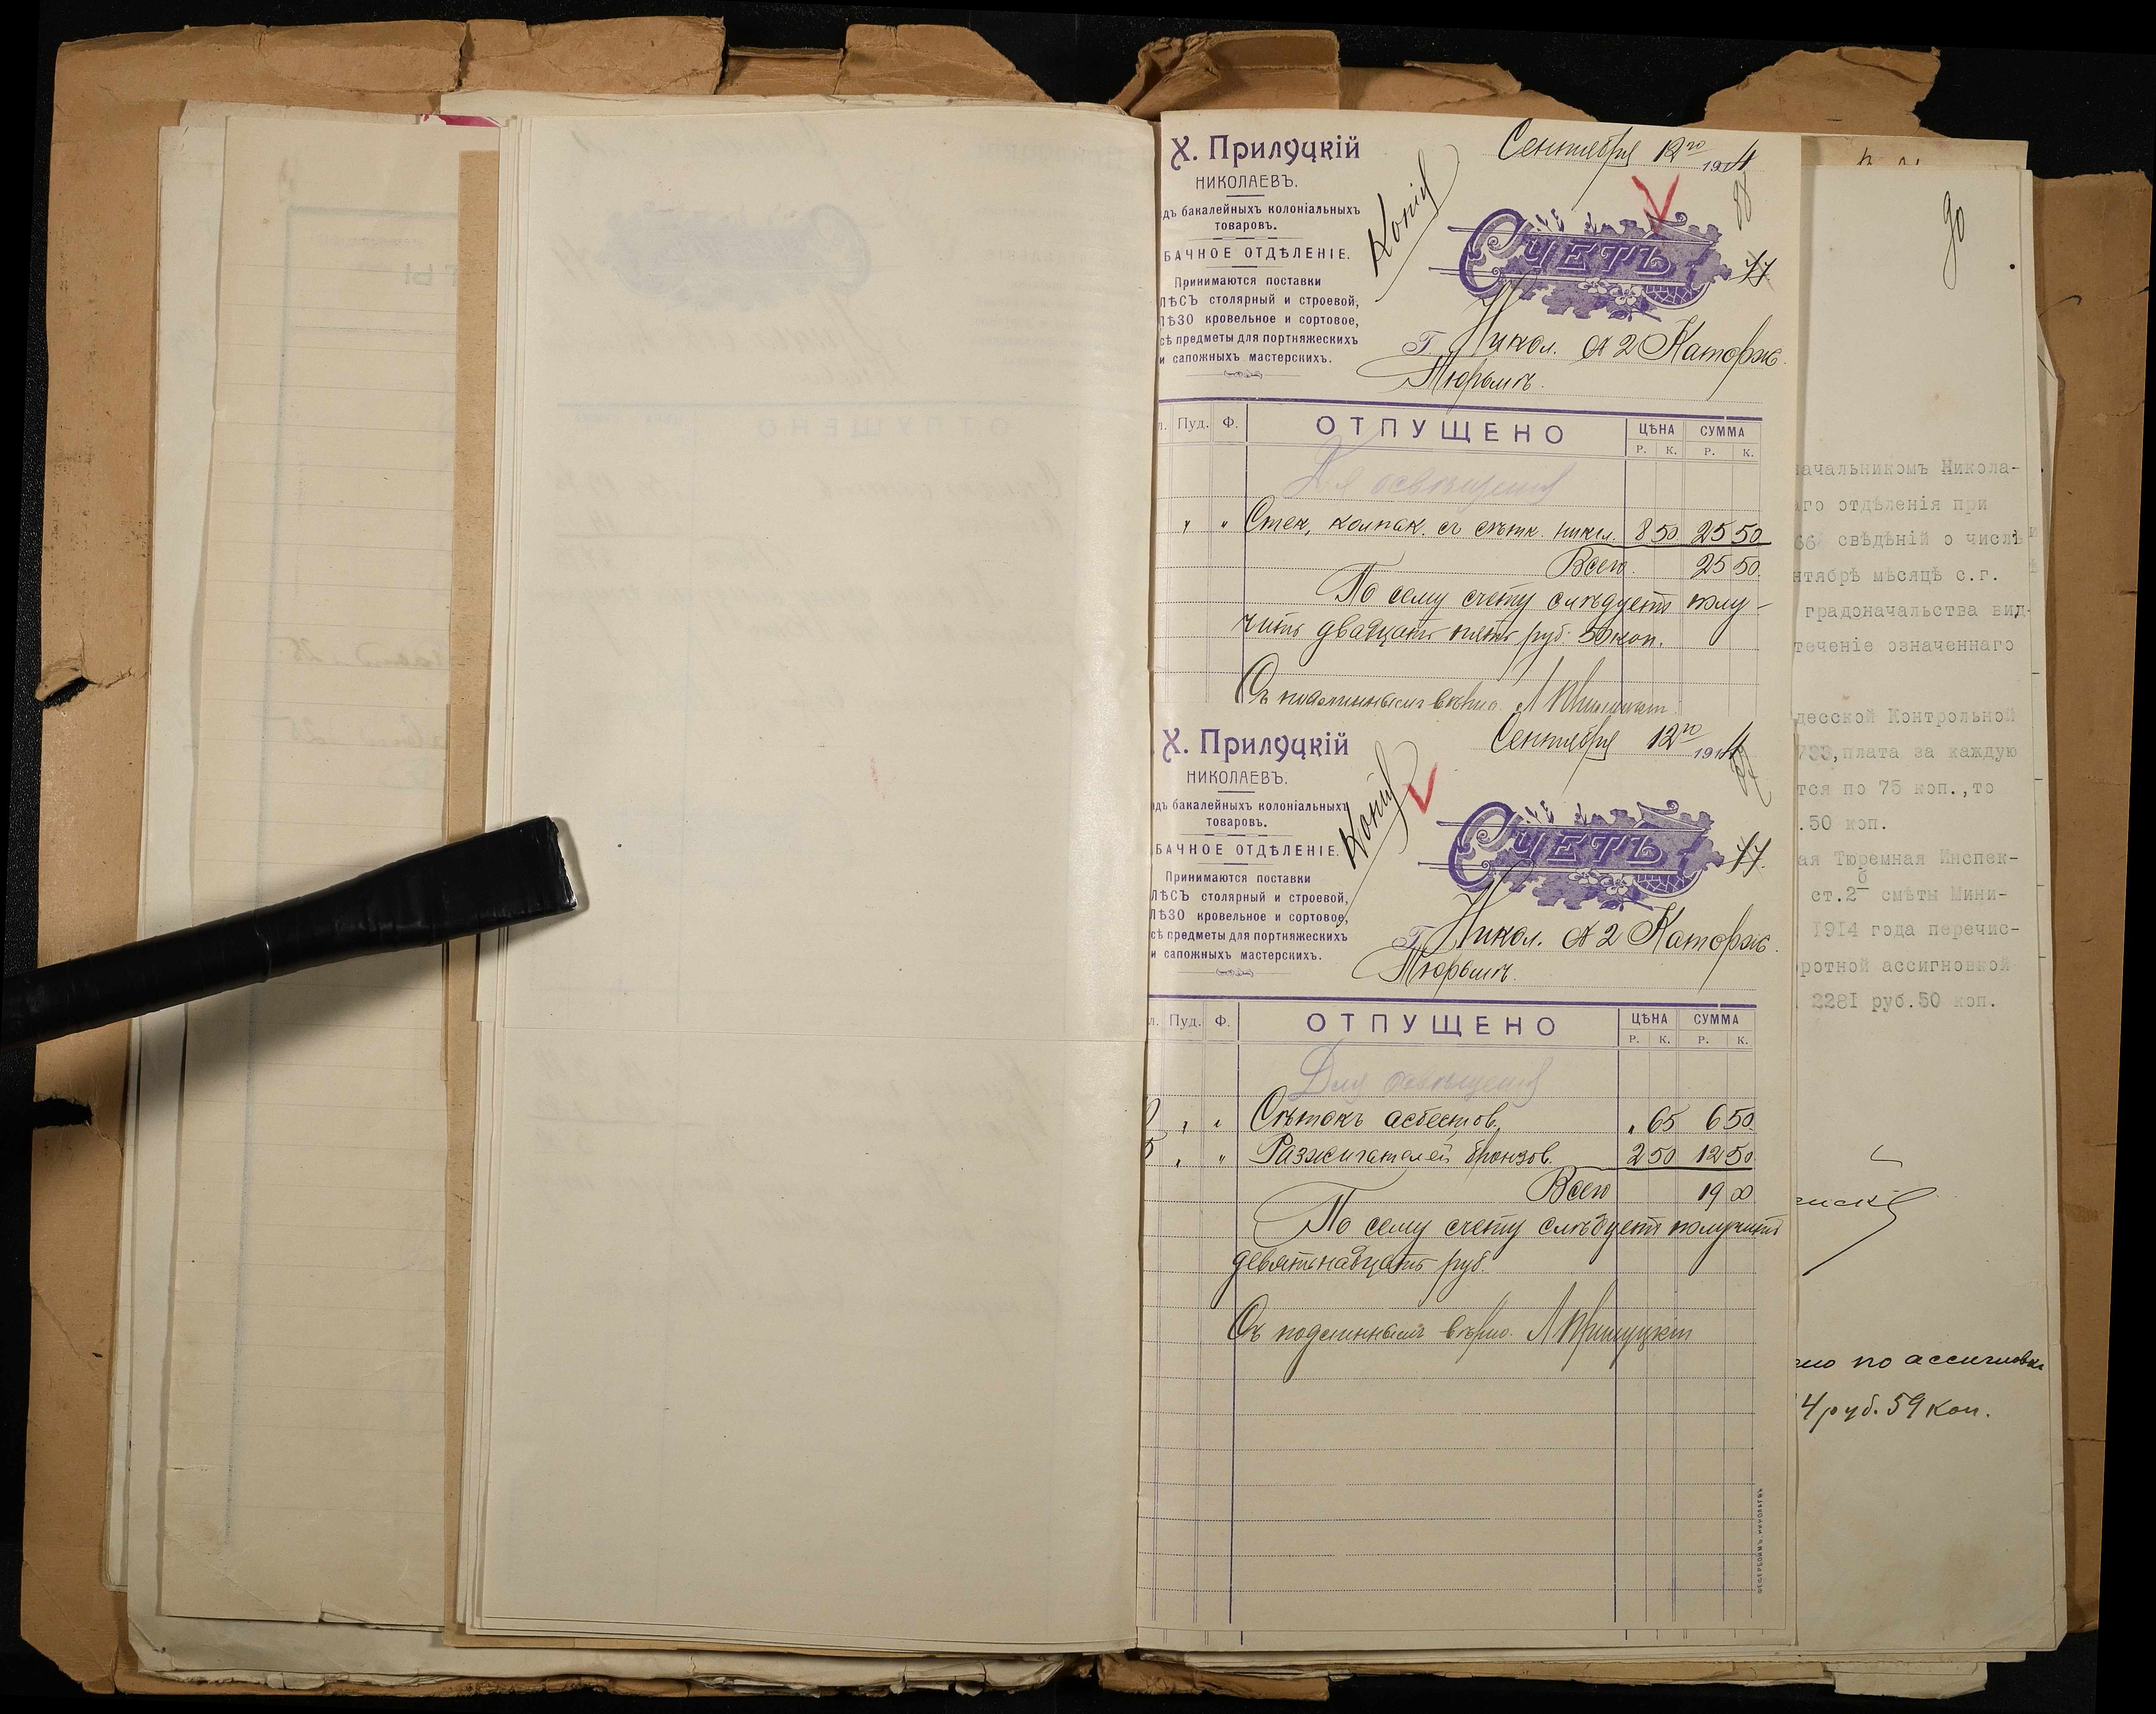 Х. Прилуцкій
НИКОЛАЕВЪ.
дъ бакалейныхъ колоніальныхъ
товаровъ.
БАЧНОЕ ОТДѢЛЕНІЕ.
Принимаются поставки
ЛѢСЪ столярный и строевой,
ЛѢЗО кровельное и сортовое,
сѣ предметы для портняжескихъ
и сапожныхъ мастерскихъ.
Копія
Сентября 12го 1914
88
СЧЕТЪ
77
Г. Никол. № 2 Каторж.
Тюрьмѣ.
л. Пуд. Ф. ОТПУЩЕНО ЦѢНА СУММА
Р. К. Р. К.
Для освѣщенія
" " Стек. колпак. съ сѣтк. никел. 8 50 25 50
Всего. 25 50.
По сему счету слѣдуетъ полу-
чить двадцать пять руб. 50 коп.
Съ подлиннымъ вѣрно. Л Прилуцкій
Х. Прилуцкій
НИКОЛАЕВЪ.
дъ бакалейныхъ колоніальныхъ
товаровъ.
БАЧНОЕ ОТДѢЛЕНІЕ.
Принимаются поставки
ЛѢСЪ столярный и строевой,
ЛѢЗО кровельное и сортовое,
сѣ предметы для портняжескихъ
и сапожныхъ мастерскихъ.
Копія
Сентября 12го 1914
СЧЕТЪ
77.
Г. Никол. № 2 Каторж.
Тюрьмѣ.
л. Пуд. Ф. ОТПУЩЕНО ЦѢНА СУММА
Р. К. Р. К.
Для освѣщенія
0 " " Сѣтокъ асбестов. " 65 6 50
5 " " Разжигателей бронзов. 2 50 12 50
Всего 19 00
По сему счету слѣдуетъ получить
девятнадцать руб.
Съ подлиннымъ вѣрно. Л Прилуцкій
90
начальникомъ Никола-
аго отдѣленія при
66 свѣдѣній о числѣ
нтябрѣ мѣсяцѣ с.г.
градоначальства вид-
теченіе означеннаго
десской Контрольной
733, плата за каждую
тся по 75 коп.,то
.50 коп.
ая Тюремная Инспек-
ст.2б смѣты Мини-
1914 года перечис-
ротной ассигновкой
2281 руб.50 коп.
ено по ассигновкѣ
4 руб. 59 коп.